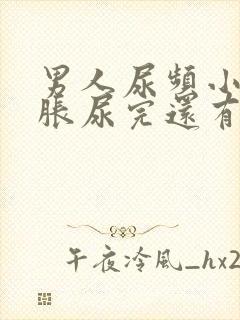 男人尿頻小
脹尿完還有
午夜冷風_hx2